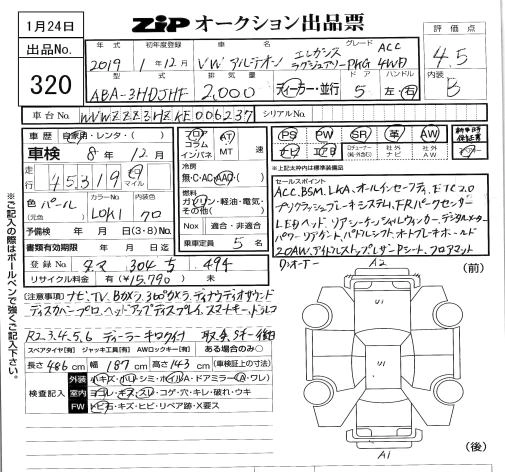 1月24日
ZiP オークション出品票
評価点
出品No.
320
年式 初年度登録 車名 グレード
2019 1年12月 VW アルテオン エレガンス ACC
ラグジュアリーPKG 4WD
4.5
型式 排気量 ドア ハンドル
ABA-3HDJHF 2,000 ディーラー・並行 5 左・右
内装
B
車台No. WVWZZZ3HZKE006237 シリアルNo.
車歴 自家用・レンタ・( )
車検 8年 12月
走行 45,319 キロ マイル
色 パール カラーNo. 内装色
(元色) L0K1 クロ
予備検 年 月 日(3・8)ヶ月
書類有効期限 年 月 日
登録No. タマ 304 ち 494
リサイクル料金 有(¥15,790) 未
フロア コラム インパネ
AT MT 速
冷房
無・C・AC・AAC・( )
燃料
ガソリン・軽油・電気・
その他( )
Nox 適合・非適合
乗車定員 5 名
PS PW SR 革 AW 新車時保証書
ナビ エアB ロデューナー(純・外含む) 社外ナビ 社外AW
※上記以外は純正標準装備品
セールスポイント
ACC.BSM.LKA.オールインセーフティ.ETC2.0
プリクラッシュブレーキシステム.FRパークセンサー
LEDヘッド.リアシーケンシャルウィンカー.デジタルメーター
パワーリアゲート.パドルシフト.オートブレーキホールド
20AW.アイドルストップ.レザーPシート.フロアマット
(注意事項)ナビ.TV.Bカメラ.360°カメラ.ディナウディオサウンド
ディスカバープロ.ヘッドアップディスプレイ.スマートキー.ドラレコ
R2.3.4.5.6 ディーラーキロクカイ 取.保.Sキー後日
スペアタイヤ【有】 ジャッキ工具【有】 AWロックキー【有】 ある場合のみ○
長さ 486 cm 幅 187 cm 高さ 143 cm (車検証上の寸法)
検査記入
外装 小キズ・凹・シミ・ホイルA・ドアミラー(A・ワレ)
室内 ヨゴレ・キズ・スレ・コゲ・穴・キレ・破れ・ウキ
FW トビ石・キズ・ヒビ・リペア跡・X要ス
A2
(前)
U1
U1
A1
(後)
※ご記入の際はボールペンで強くご記入下さい。